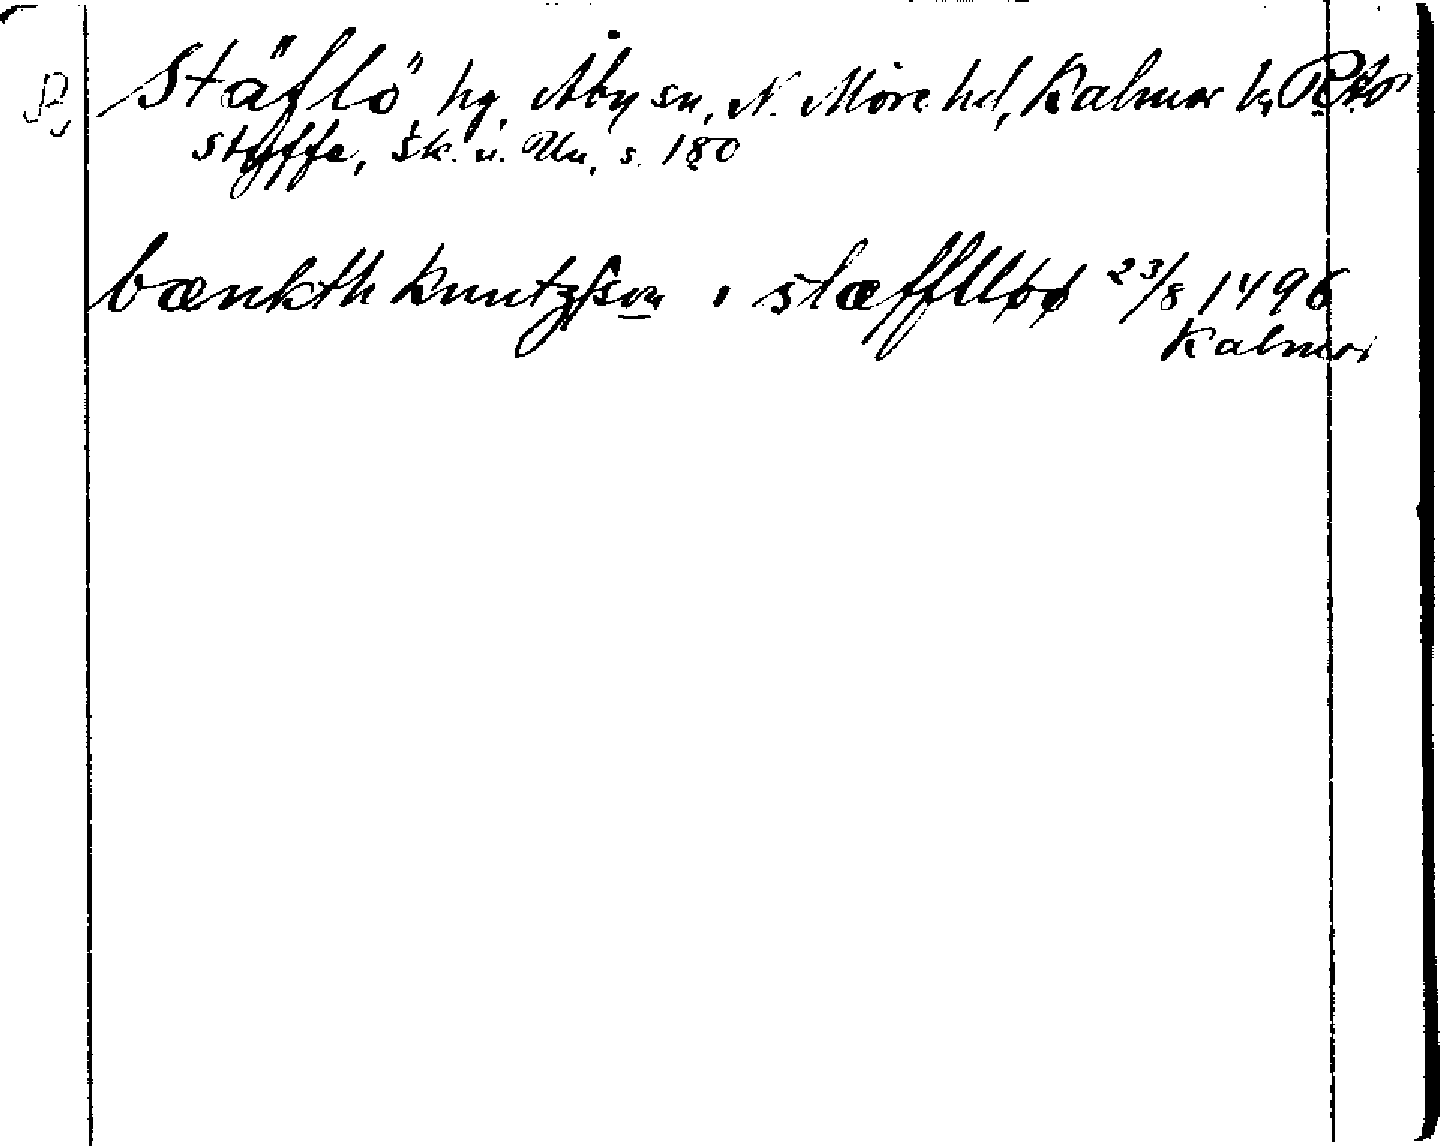 Stäflö, hg, Åby sn, N. Möre hd, Kalmar l.
Styffe, Sk. u. Un., s. 180
bænkth knutzsson i stæfflløø 23/8 1496
Kalmar